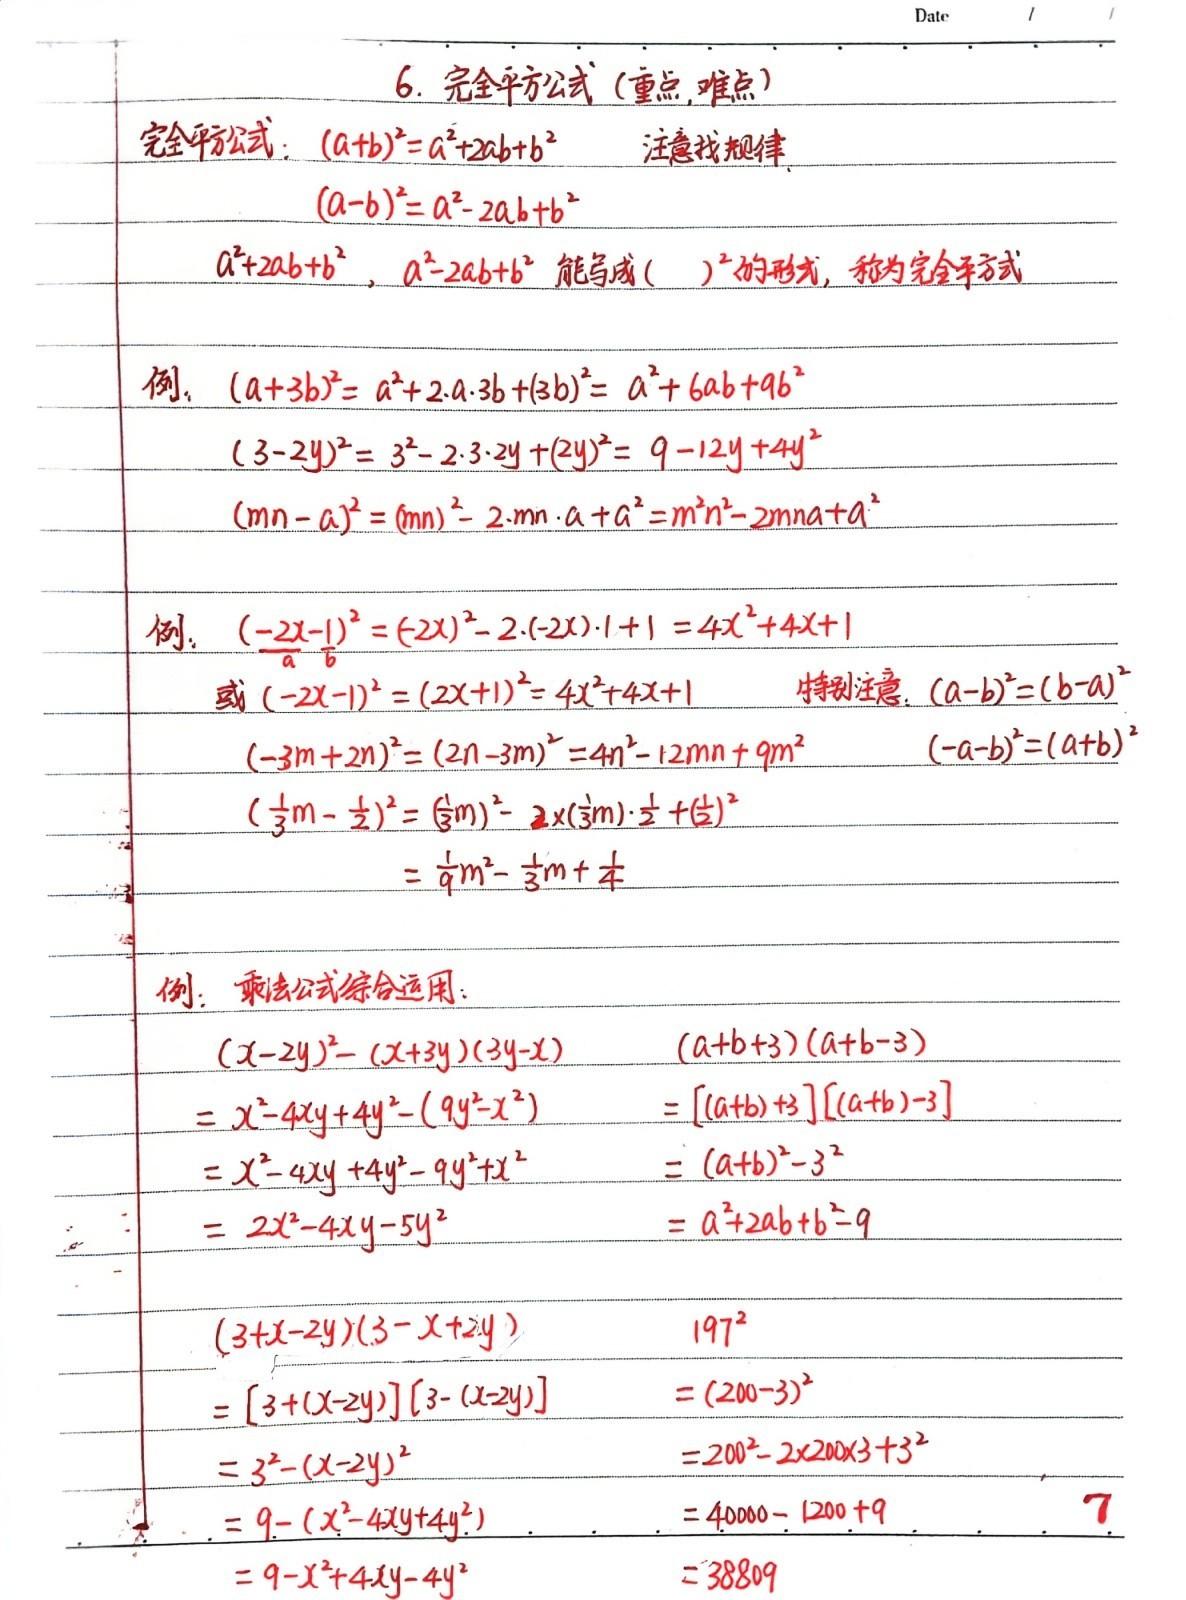 Date / /
6. 完全平方公式 (重点,难点)
完全平方公式: (a+b)²=a²+2ab+b² 注意找规律.
(a-b)²=a²-2ab+b²
a²+2ab+b², a²-2ab+b² 能写成( )²的形式, 称为完全平方式
例: (a+3b)²= a²+2·a·3b+(3b)²= a²+6ab+9b²
(3-2y)²= 3²-2·3·2y+(2y)²= 9-12y+4y²
(mn-a)²=(mn)²-2·mn·a+a²=m²n²-2mna+a²
例: (-2x-1)²=(-2x)²-2·(-2x)·1+1=4x²+4x+1
a b
或 (-2x-1)²=(2x+1)²=4x²+4x+1 特别注意: (a-b)²=(b-a)²
(-3m+2n)²=(2n-3m)²=4n²-12mn+9m² (-a-b)²=(a+b)²
(1/3m-1/2)²=(1/3m)²-2×(1/3m)·1/2+(1/2)²
=1/9m²-1/3m+1/4
例: 乘法公式综合运用:
(x-2y)²-(x+3y)(3y-x) (a+b+3)(a+b-3)
=x²-4xy+4y²-(9y²-x²) =[(a+b)+3][(a+b)-3]
=x²-4xy+4y²-9y²+x² =(a+b)²-3²
=2x²-4xy-5y² =a²+2ab+b²-9
(3+x-2y)(3-x+2y) 197²
=[3+(x-2y)][3-(x-2y)] =(200-3)²
=3²-(x-2y)² =200²-2×200×3+3²
=9-(x²-4xy+4y²) =40000-1200+9 7
=9-x²+4xy-4y² =38809